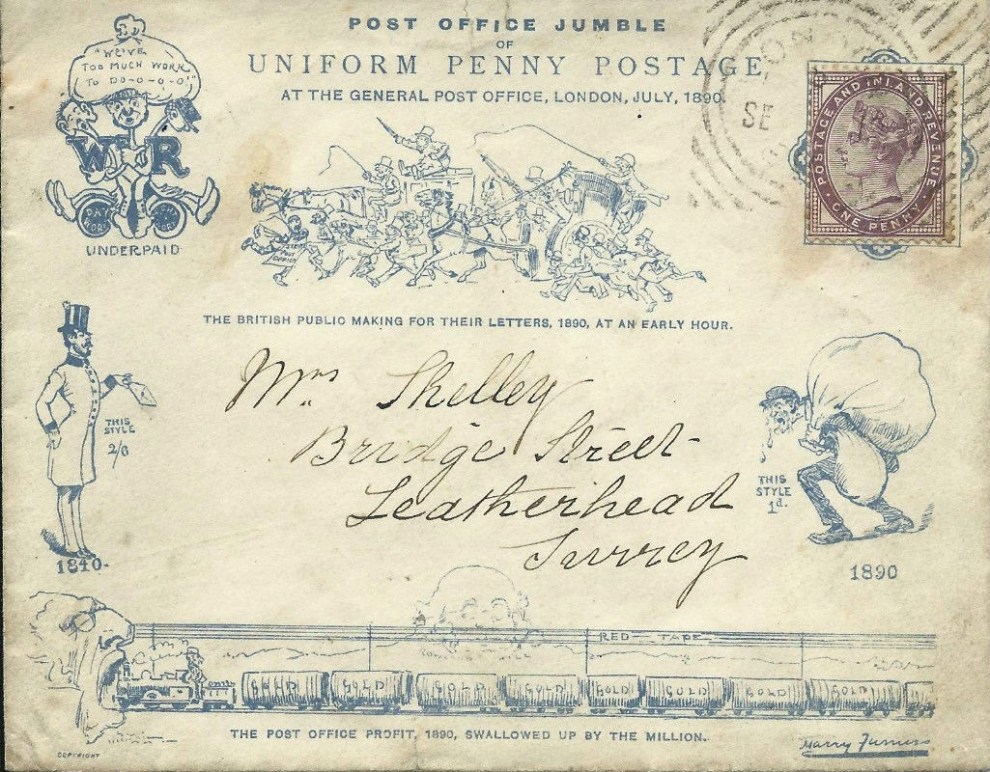 POST OFFICE JUMBLE
OF
UNIFORM PENNY POSTAGE
AT THE GENERAL POST OFFICE, LONDON, JULY, 1890.
"WE'VE
TOO MUCH WORK
TO DO-O-O-O"
W R
UNDERPAID
SE
POSTAGE AND INLAND REVENUE
ONE PENNY
POST
OFFICE
THE BRITISH PUBLIC MAKING FOR THEIR LETTERS, 1890, AT AN EARLY HOUR.
Mrs Shelley
Bridge Street
Leatherhead
Surrey
THIS
STYLE
2/6
1840.
THIS
STYLE
1d.
1890
RED TAPE
GOLD GOLD GOLD GOLD GOLD GOLD GOLD GOLD
THE POST OFFICE PROFIT, 1890, SWALLOWED UP BY THE MILLION.
COPYRIGHT
Harry Furniss